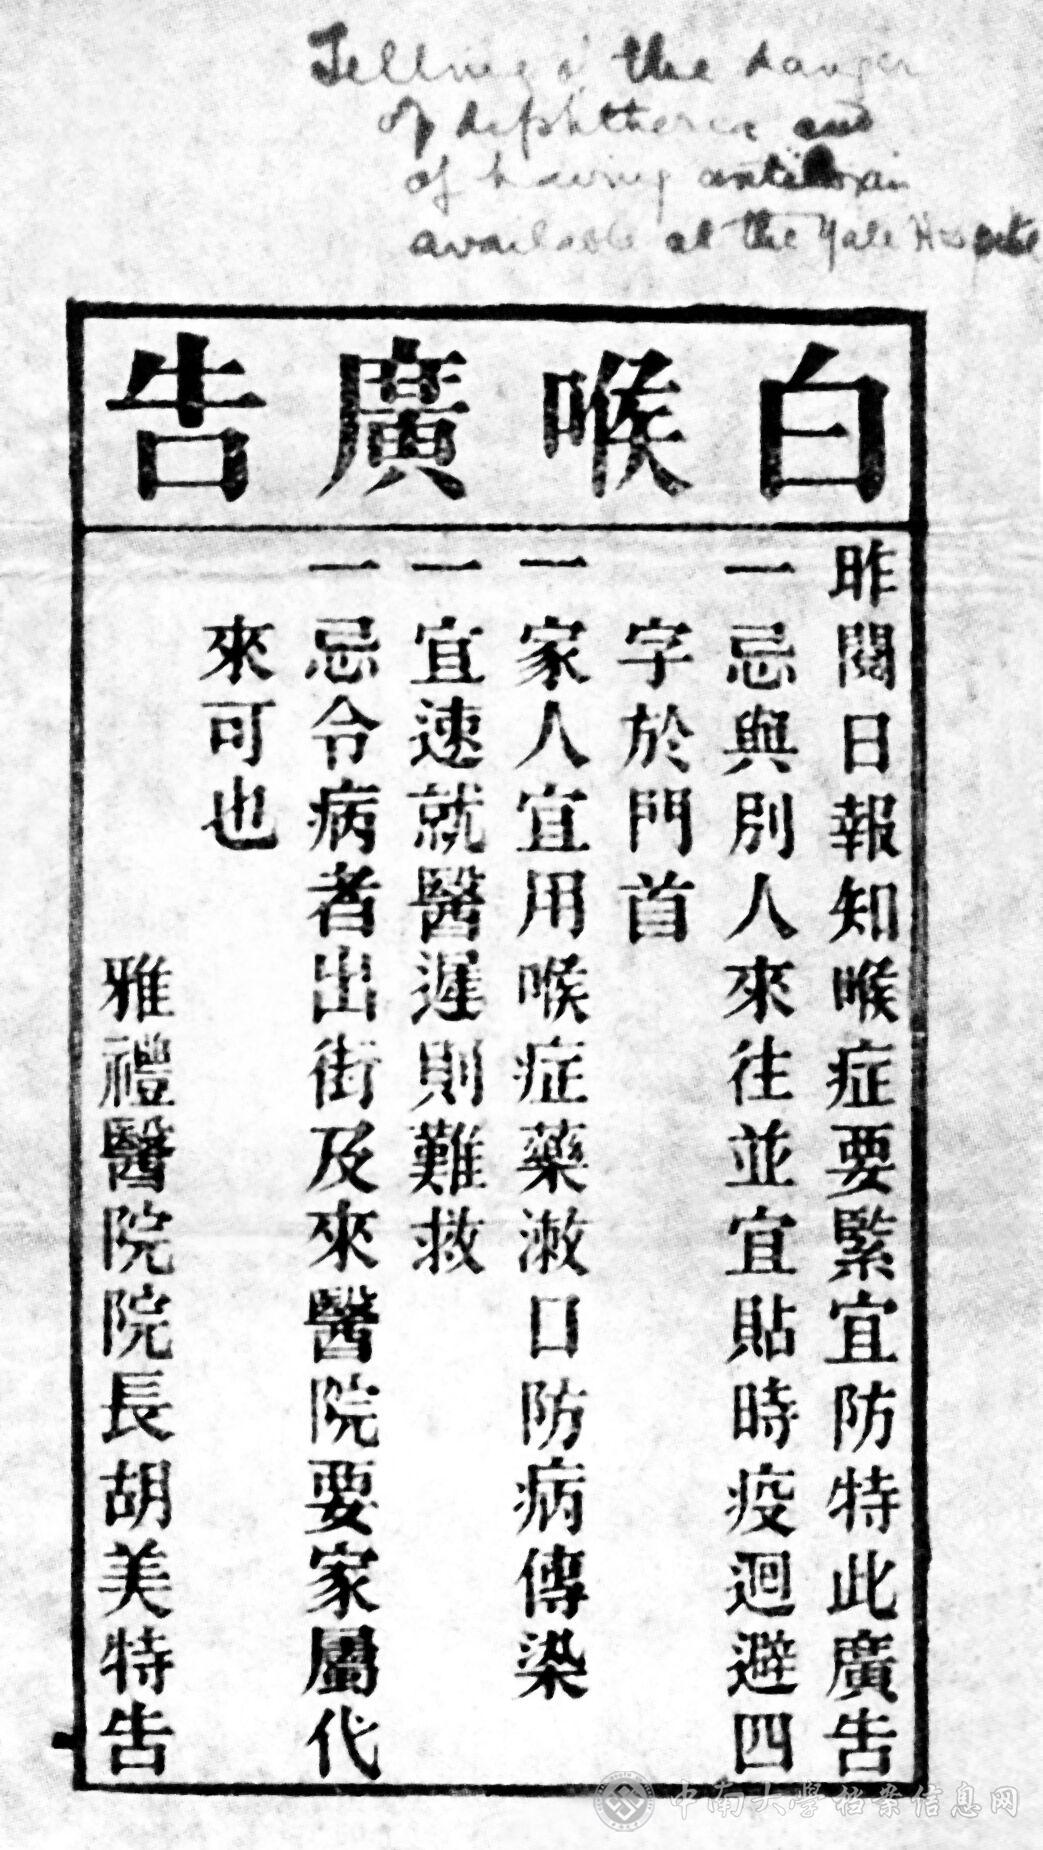 Telling of the danger
of diphtheria and
of having antitoxin
available at the Yale Hospital
白喉廣告
昨閱日報知喉症要緊宜防特此廣告
一忌與別人來往並宜貼時疫迴避四
字於門首
一家人宜用喉症藥漱口防病傳染
一宜速就醫遲則難救
一忌令病者出街及來醫院要家屬代
來可也
雅禮醫院院長胡美特告
中南大學档案信息网